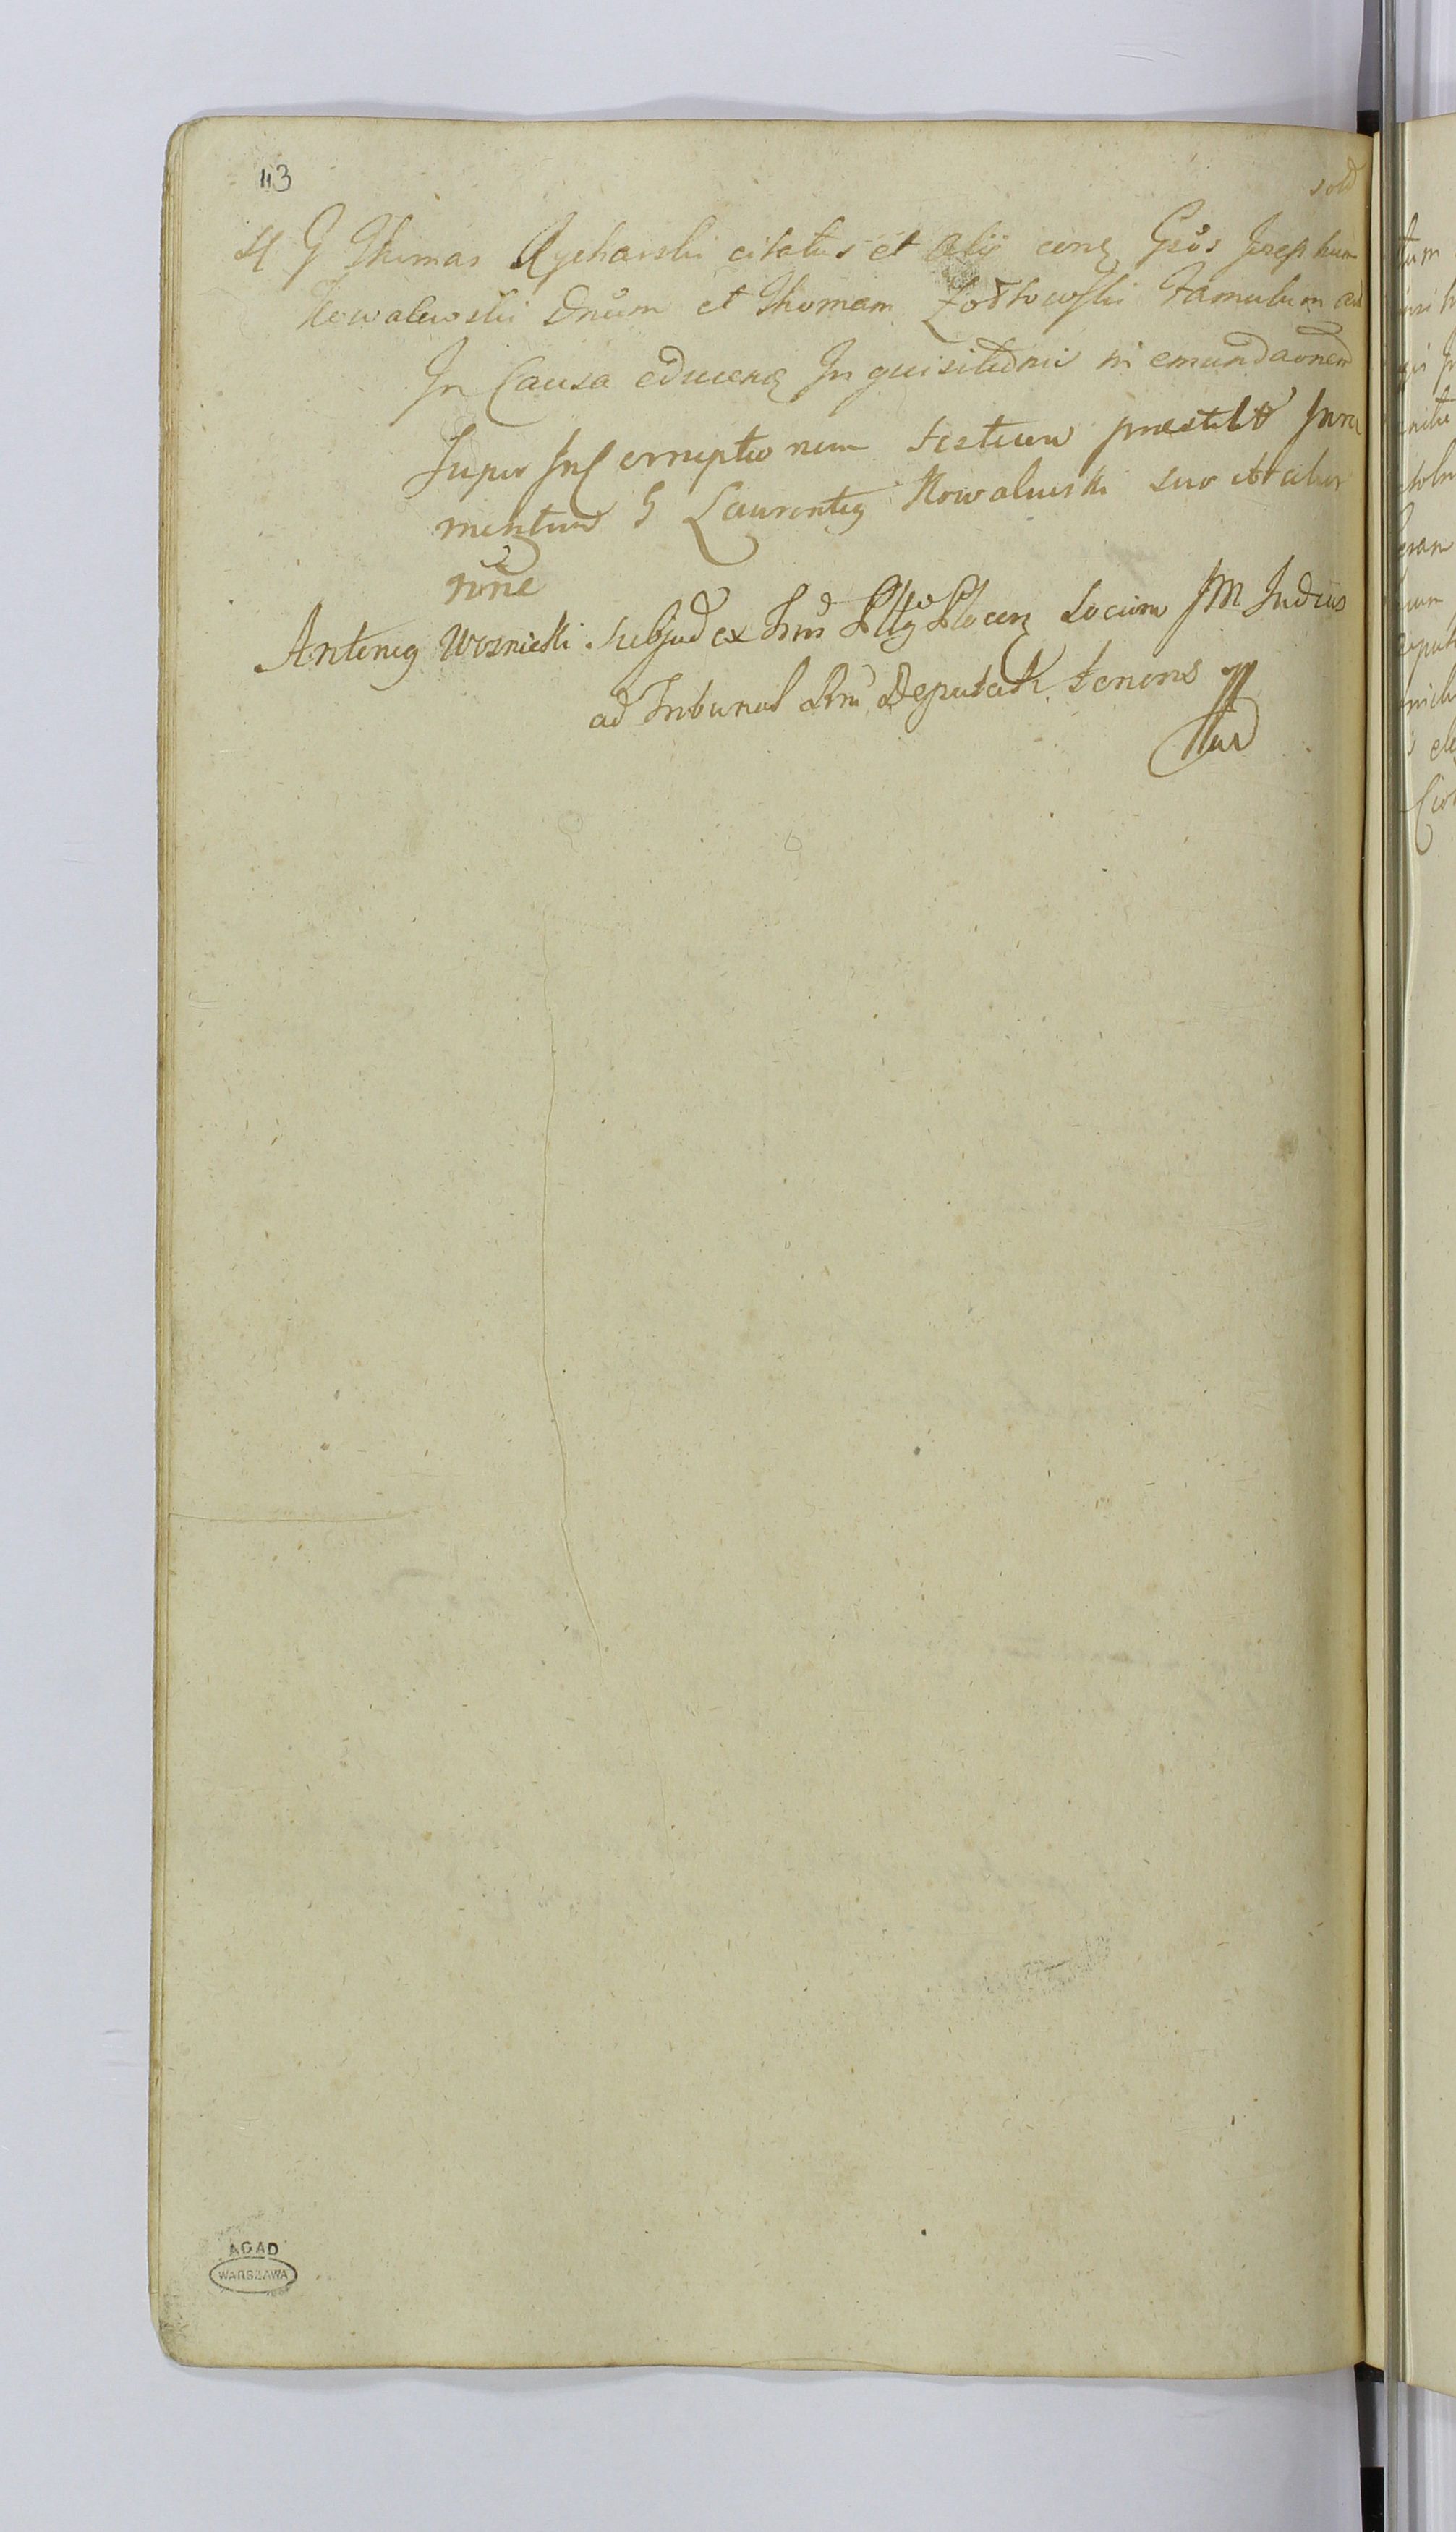 113
sold
4 G Thomas Rycharski citatus et alij conq Gsos Josephum
Kowalewski Dnum et Thomam Zołtowski Famulum
In Causa educenq Inquisitionu in emundaonem
Super Inf corruptionem testium praestitit Jura
mentum G Laurentq Kowalewski suo et alior
nŏne
Antoniq Woznicki Subjudex Plocen Locum JM Judicis
ad Tribunal Rni Deputati tenens
AGAD
WARSZAWA